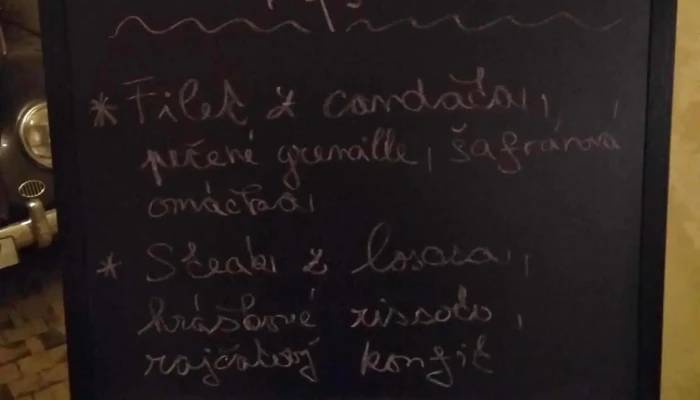 * Filet z candáta,
pečené grenaille, šafránová
omáčka
* Steak z lososa,
hráškové rissoto,
rajčatový konfit